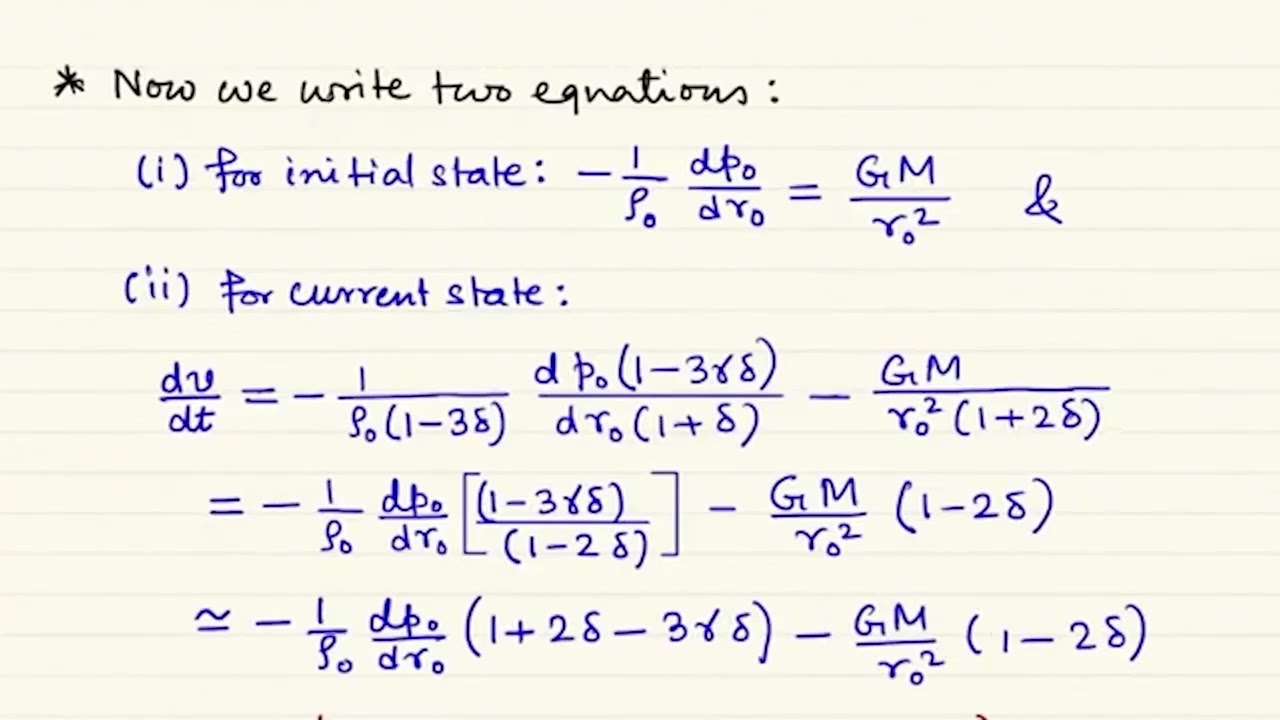 * Now we write two equations:
(i) for initial state: - 1/ρ₀ dp₀/dr₀ = GM/r₀² &
(ii) for current state:
dv/dt = - 1/ρ₀(1-3δ) d p₀(1-3γδ)/dr₀(1+δ) - GM/r₀²(1+2δ)
= - 1/ρ₀ dp₀/dr₀ [(1-3γδ)/(1-2δ)] - GM/r₀² (1-2δ)
≃ - 1/ρ₀ dp₀/dr₀ (1+2δ-3γδ) - GM/r₀² (1-2δ)